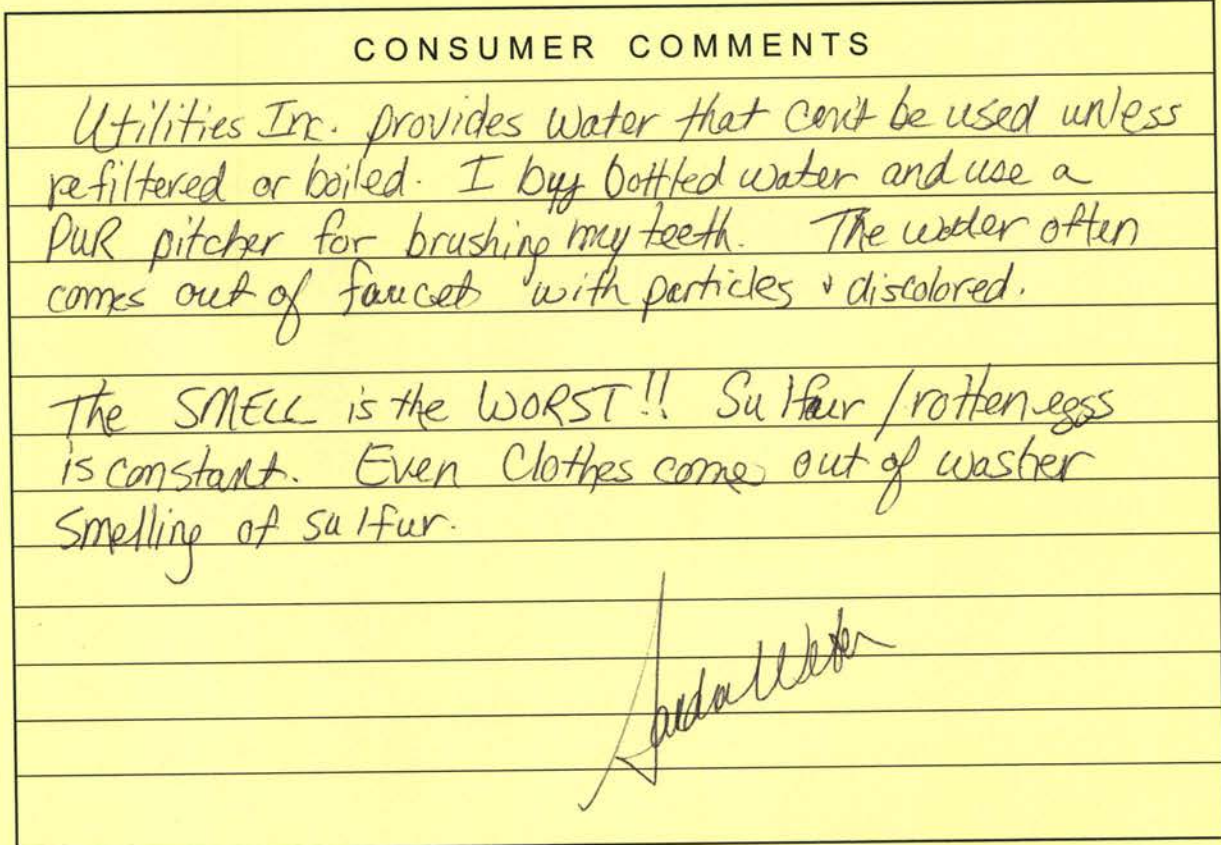 CONSUMER COMMENTS
Utilities Inc. provides water that can't be used unless
refiltered or boiled. I buy bottled water and use a
PUR pitcher for brushing my teeth. The water often
comes out of faucet with particles & discolored.
The SMELL is the WORST!! Sulfur / rotten eggs
is constant. Even Clothes come out of washer
smelling of sulfur.